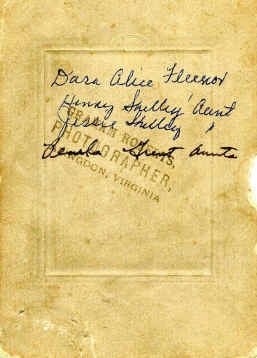 Dara Alice Fleenor
Henry Shelley Aunt
Jessie Shelley "
Great Aunts
PHOTOGRAPHER,
VIRGINIA